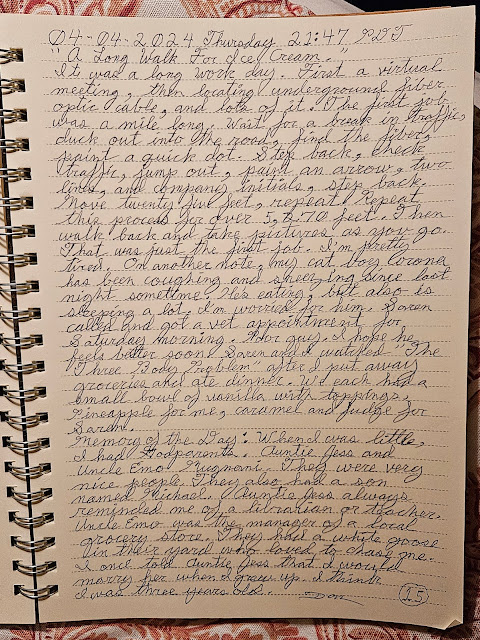 04-04-2024 Thursday 21:47 PDT
"A Long Walk For Ice Cream."
It was a long work day. First a virtual
meeting, then locating underground fiber
optic cable, and lots of it. The first job
was a mile long. Wait for a break in traffic,
duck out into the road, find the fiber,
paint a quick dot. Step back, check
traffic, jump out, paint an arrow, two
lines, and company initials, step back.
Move twenty five feet, repeat. repeat
this process for over 5,270 feet. Then
walk back and take pictures as you go.
That was just the first job. I'm pretty
tired. On another note, my cat boy Corona
has been coughing and sneezing since last
night sometime. He's eating, but also is
sleeping a lot. I'm worried for him. Soren
called and got a vet appointment for
Saturday morning. Poor guy. I hope he
feels better soon. Soren and I watched "The
Three Body Problem" after I put away
groceries and ate dinner. We each had a
small bowl of vanilla with toppings,
Pineapple for me, caramel and fudge for
Soren.
Memory of the Day: When I was little,
I had Godparents. Auntie Jess and
Uncle Emo Mugnani. They were very
nice people. They also had a son
named Michael. Auntie Jess always
reminded me of a librarian or teacher.
Uncle Emo was the manager of a local
grocery store. They had a white goose
in their yard who loved to chase me.
I once told Auntie Jess that I would
marry her when I grew up. I think
I was three years old.
15